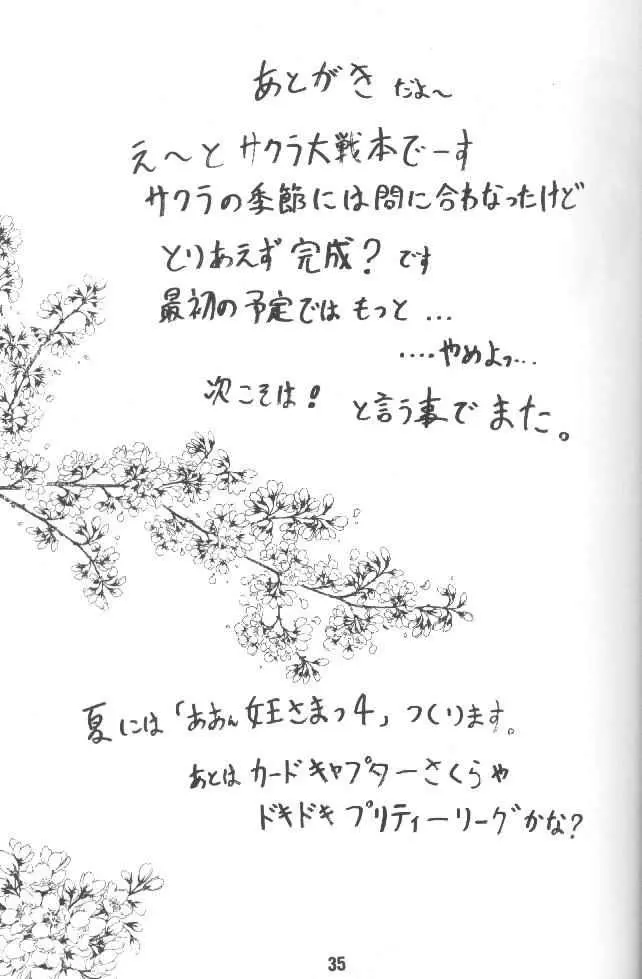 あとがき だよ〜
え〜と サクラ大戦本でーす
サクラの季節には間に合わなったけど
とりあえず 完成？です
最初の予定では もっと…
‥‥やめよっ…
次こそは！ と言う事で また。
夏には「ああん女王さまっ４」つくります。
あとは カードキャプターさくらや
ドキドキ プリティーリーグかな？
35